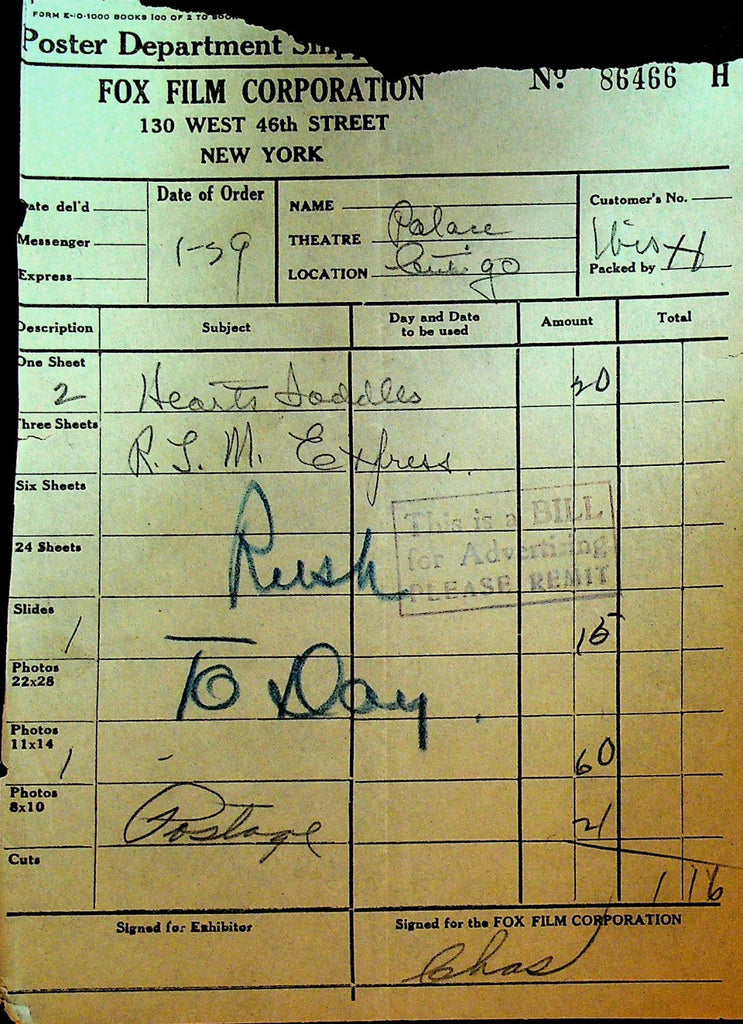 FORM E-10-1000 BOOKS 100 OF 2 TO BOOK
Poster Department
FOX FILM CORPORATION
130 WEST 46th STREET
NEW YORK
Nº 86466 H
Date del'd
Messenger
Express
Date of Order
1-29
NAME
THEATRE Palace
LOCATION Antigo
Customer's No.
Packed by
Description Subject Day and Date to be used Amount Total
One Sheet
2 Hearts Saddles 20
Three Sheets
R. S. M. Express.
Six Sheets
24 Sheets
Rush
This is a BILL
for Advertising
PLEASE REMIT
Slides
1 15
Photos
22x28
To Day.
Photos
11x14
1 60
Photos
8x10
Postage 21
Cuts
1 16
Signed for Exhibitor
Signed for the FOX FILM CORPORATION
Chas